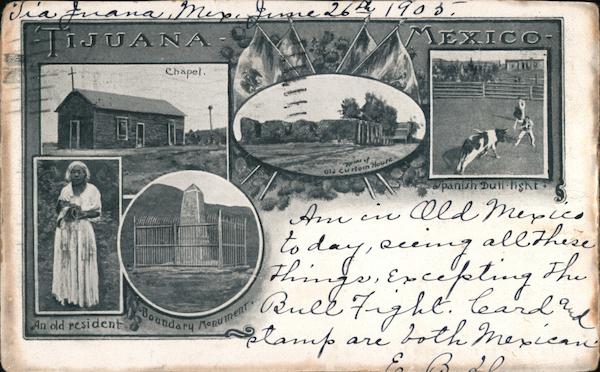 Tia Juana, Mex, June 26th, 1905.
TIJUANA - MEXICO -
Chapel.
Ruins of
Old Custom House.
Spanish Bull-fight.
An old resident
Boundary Monument.
Am in Old Mexico
to day, seeing all these
things, excepting the
Bull Fight. Card and
stamp are both Mexican